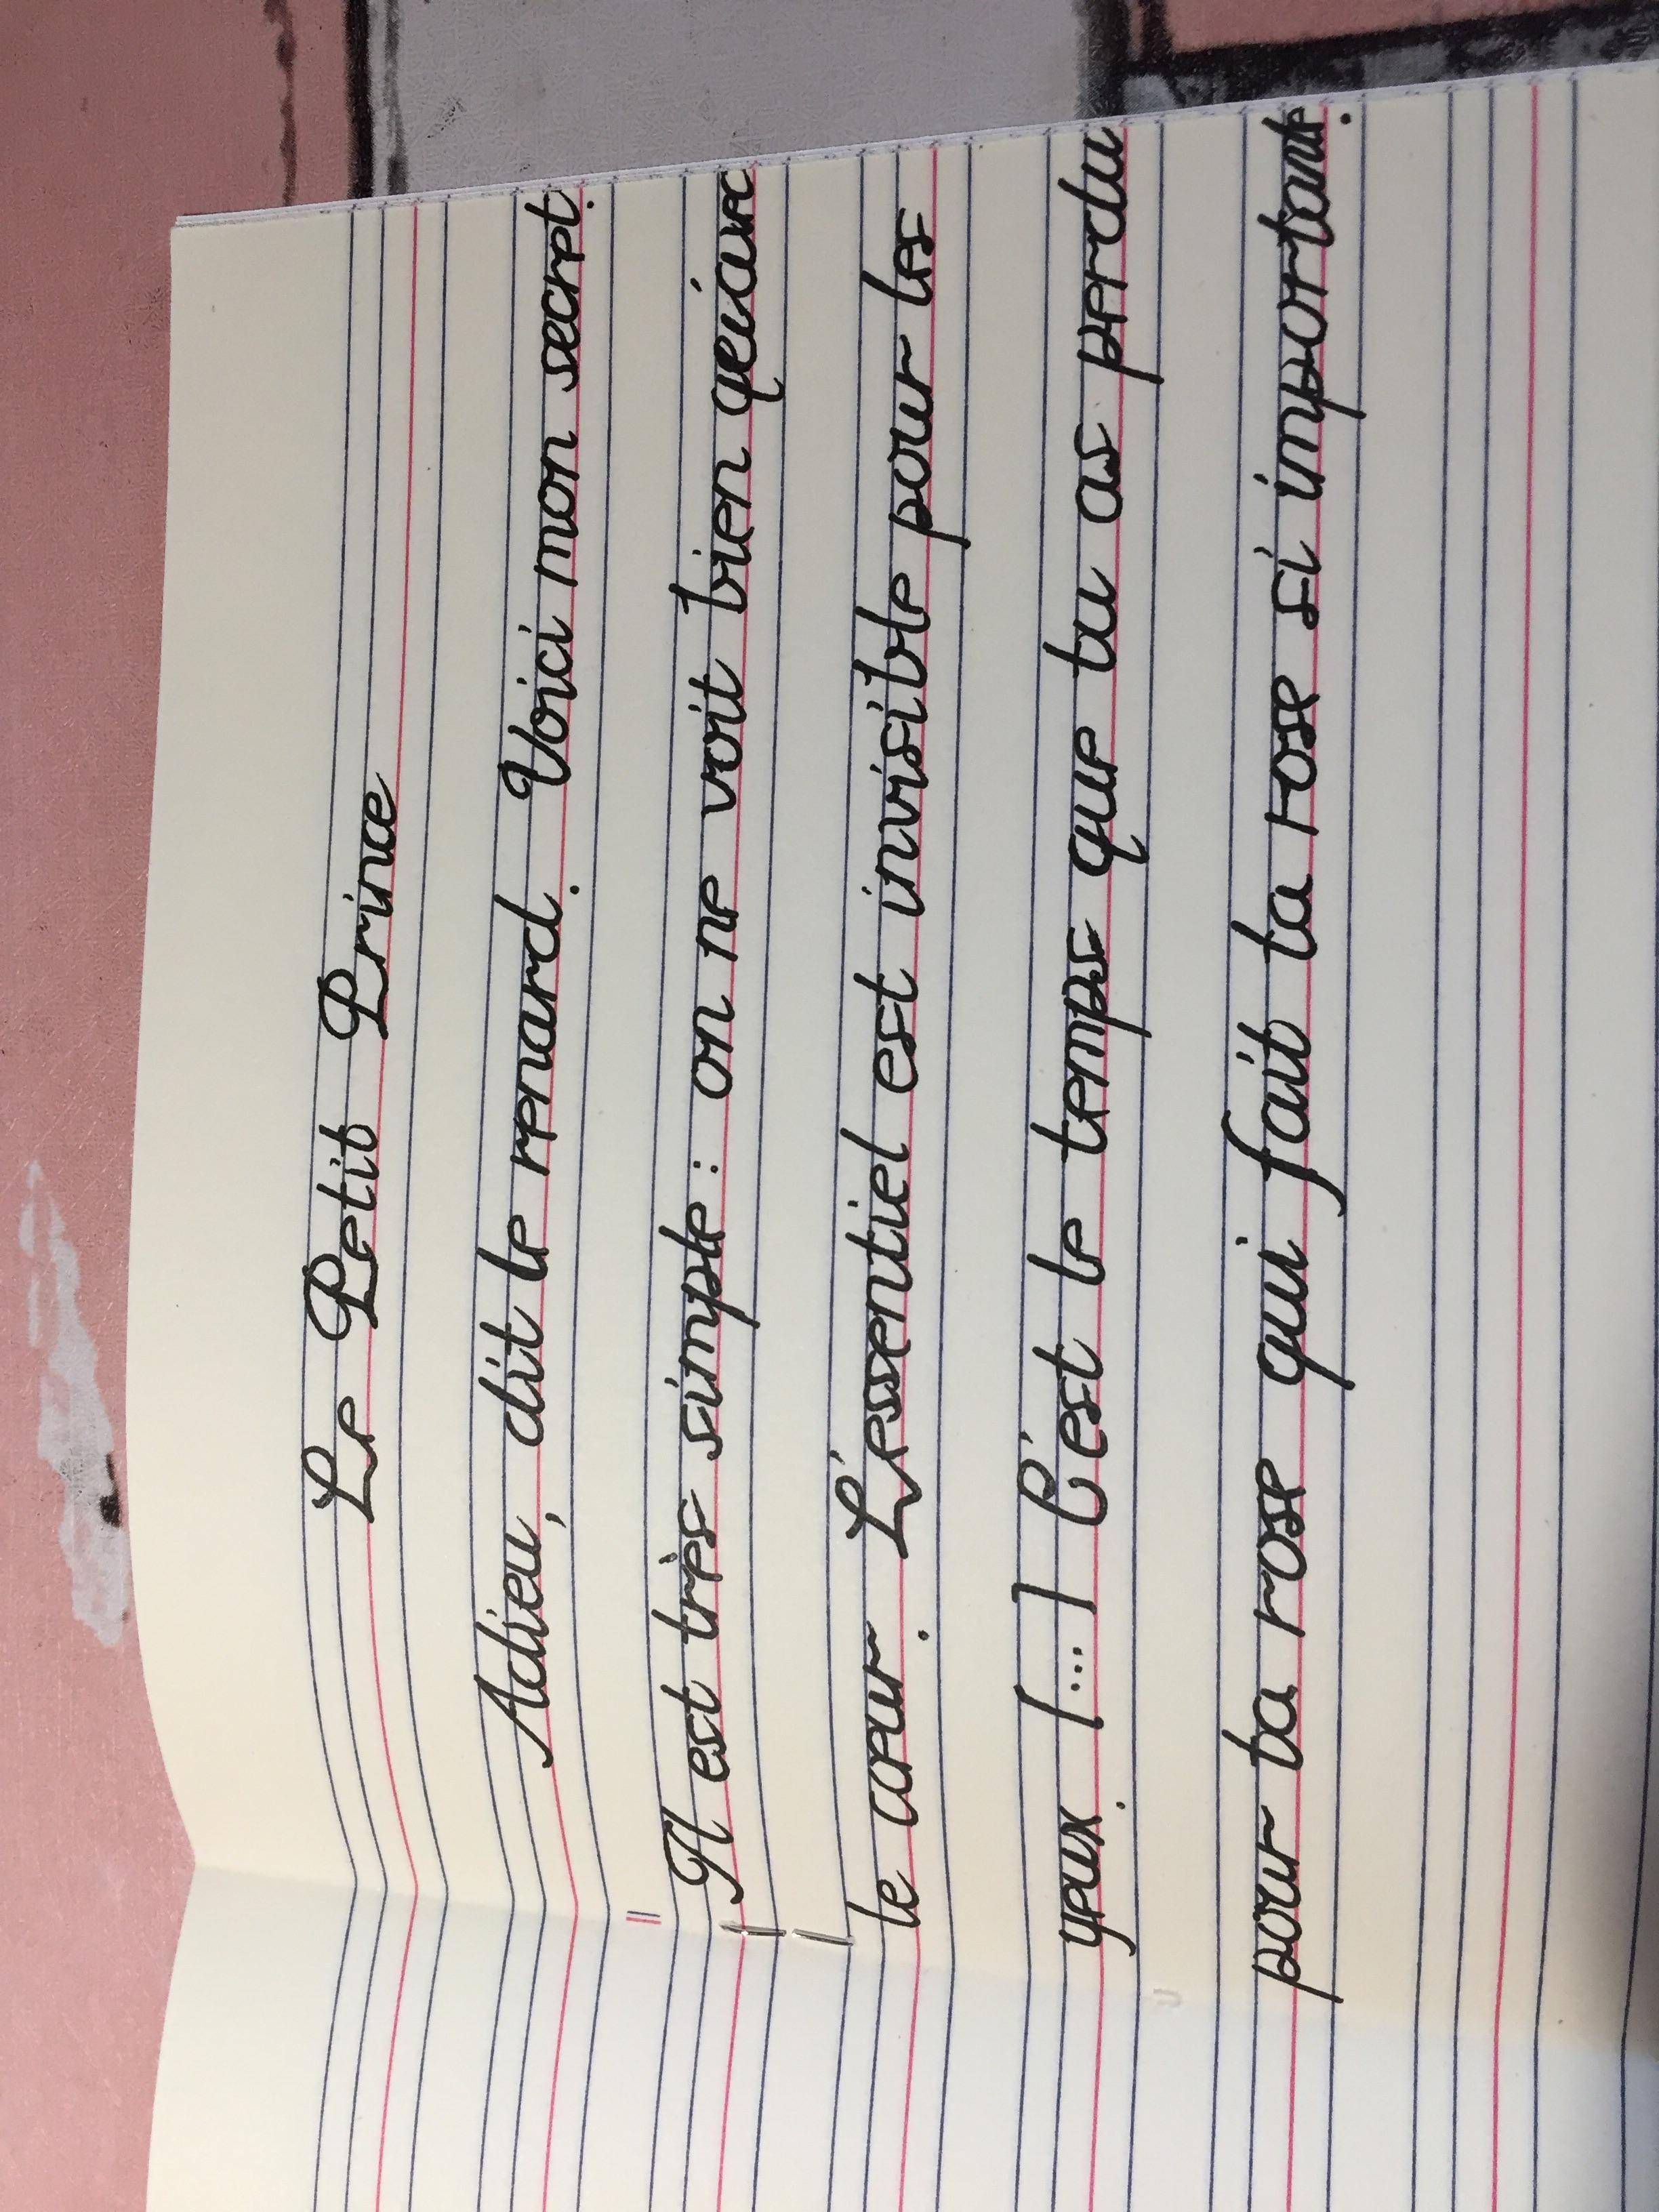 Le Petit Prince
Adieu, dit le renard. Voici mon secret.
Il est très simple : on ne voit bien qu'avec
le cœur. L'essentiel est invisible pour les
yeux. [...] C'est le temps que tu as perdu
pour ta rose qui fait ta rose si importante.